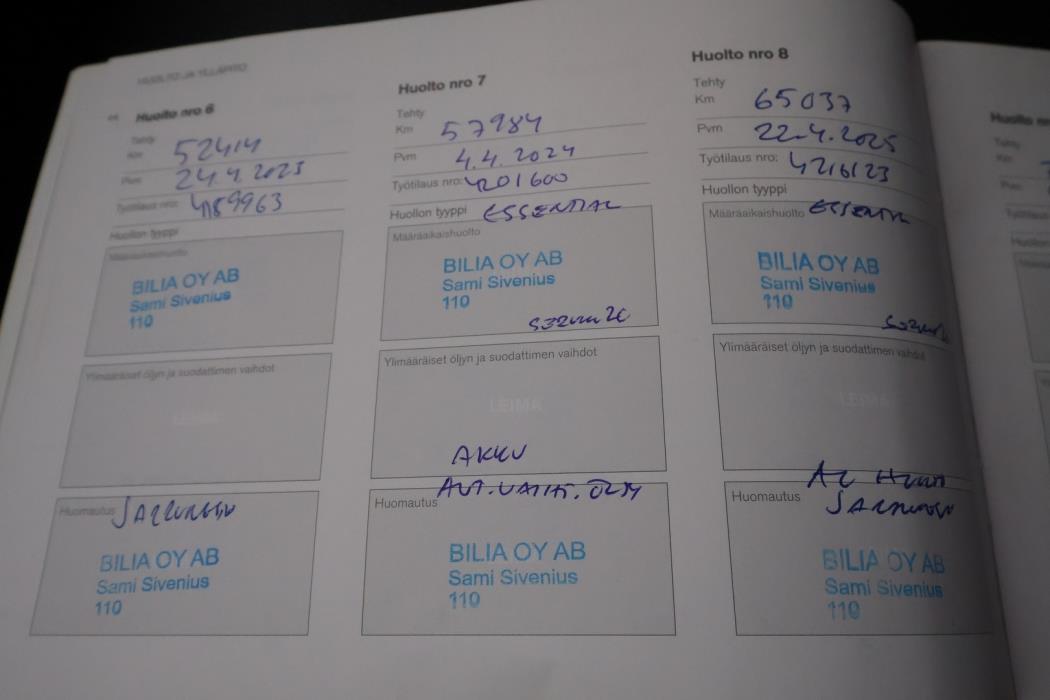 HUOLTO JA YLLÄPITO
Huolto nro 6
Tehty
Km 52414
Pvm 24.4.2023
Työtilaus nro: 4189963
Huollon tyyppi
Määräaikaishuolto
BILIA OY AB
Sami Sivenius
110
Ylimääräiset öljyn ja suodattimen vaihdot
LEIMA
Huomautus
BILIA OY AB
Sami Sivenius
110
Huolto nro 7
Tehty
Km 57984
Pvm 4.4.2024
Työtilaus nro: 4201600
Huollon tyyppi ESSENTIAL
Määräaikaishuolto
BILIA OY AB
Sami Sivenius
110
Ylimääräiset öljyn ja suodattimen vaihdot
LEIMA
AKKU
AUT.VAIHT. ÖLJY
Huomautus
BILIA OY AB
Sami Sivenius
110
Huolto nro 8
Tehty
Km 65037
Pvm 22.4.2025
Työtilaus nro: 4216123
Huollon tyyppi
Määräaikaishuolto ESSENTIAL
BILIA OY AB
Sami Sivenius
110
Ylimääräiset öljyn ja suodattimen vaihdot
LEIMA
Huomautus
BILIA OY AB
Sami Sivenius
110